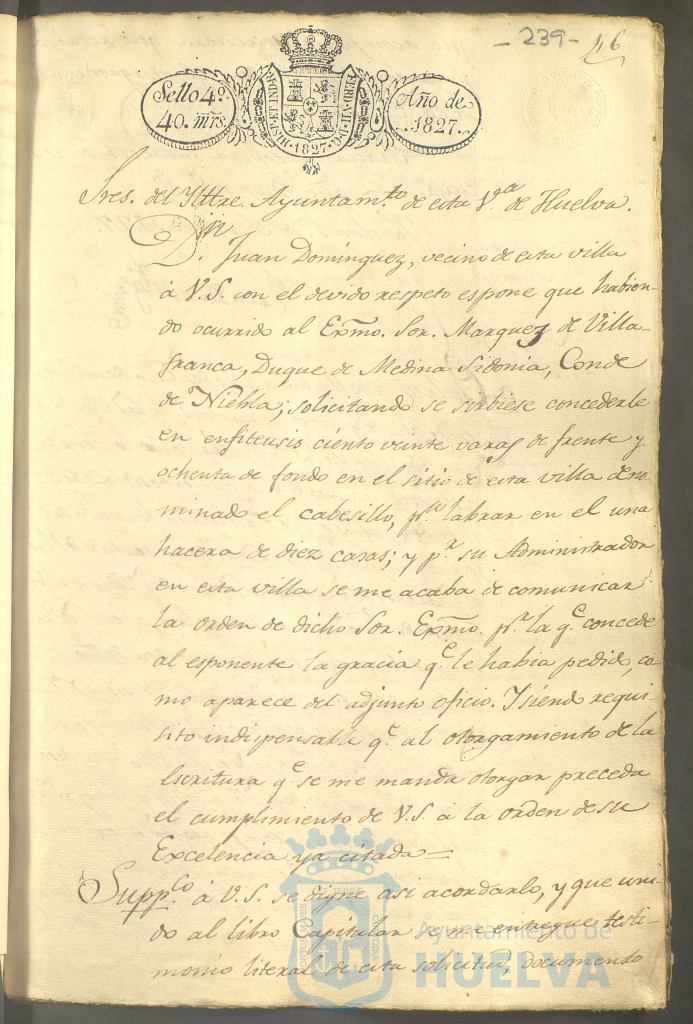 - 239 -
46
Sello 4º.
40. mrs.
HISP. ET IND. R.
FERD. VII. D. G.
1827.
Año de
1827.
Sres. del Ylltre. Ayuntam.to de esta V.a de Huelva.
D.n Juan Dominguez, vecino de esta villa
á V.S. con el devido respeto espone que habien-
do ocurrido al Exmo. Sor. Marquez de Villa-
franca, Duque de Medina Sidonia, Conde
de Niebla; solicitando se sirbiese concederle
en enfiteusis ciento veinte varas de frente y
ochenta de fondo en el sitio de esta villa deno
minado el cabesillo, p.a labrar en el una
hacera de diez casas; y p.r su Administrador
en esta villa se me acaba de comunicar
la orden de dicho Sor. Exmo. p.r la q.e concede
al esponente la gracia q.e le habia pedido, co
mo aparece del adjunto oficio. Y siendo requi
sito indispensable q.e al otorgamiento de la
Escritura q.e se me manda otorgar preceda
el cumplimiento de V.S. á la orden de su
Excelencia ya citada =
Supp.co á V.S. se digne asi acordarlo, y que uni-
do al libro Capitular se me entregue testi-
monio literal de esta solicitud, documento
Ayuntamiento de
HUELVA